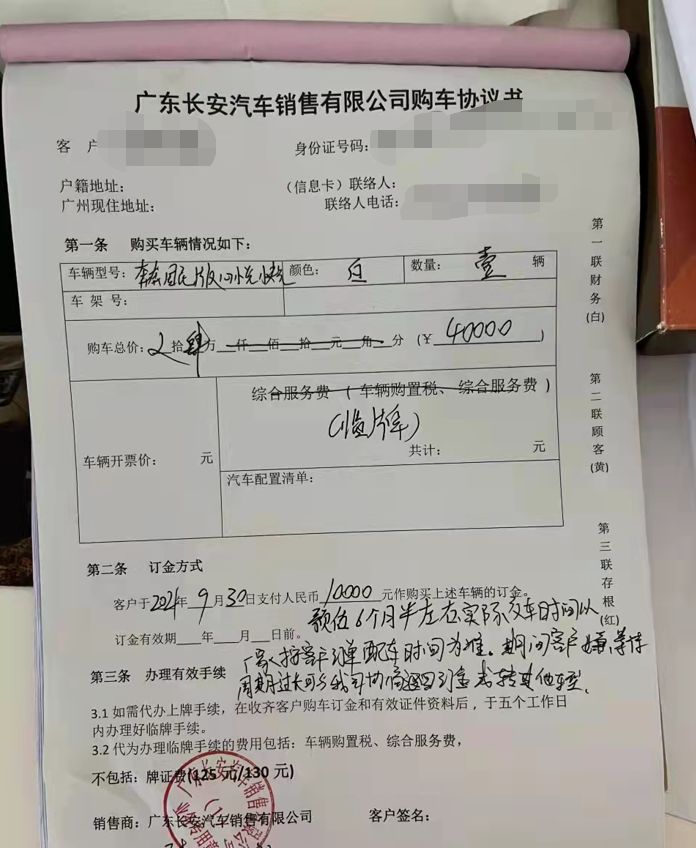 广东长安汽车销售有限公司购车协议书
客 户
身份证号码:
户籍地址:
(信息卡)联系人:
广州现住地址:
联系人电话:
第一条 购买车辆情况如下:
车辆型号: 版 颜色: 白 数量: 壹 辆
车 架 号:
购车总价: 拾 肆 万 仟 佰 拾 元 角 分 (¥ 40000 )
综合服务费 ( 车辆购置税、 综合服务费 )
(临牌)
共计: 元
车辆开票价: 元
汽车配置清单:
第二条 订金方式
客户于2021年 9月30日支付人民币 10000 元作购买上述车辆的订金。
预估6个月半左右实际交车时间以
订金有效期 年 月 日前。
厂家按客户订单配车时间为准。期间客户嫌等待
第三条 办理有效手续
周期过长可与我司协商退回订金或转其他车型。
3.1 如需代办上牌手续,在收齐客户购车订金和有效证件资料后,于五个工作日
内办理好临牌手续。
3.2 代为办理临牌手续的费用包括:车辆购置税、综合服务费,
不包括:牌证费(125 元/130 元)
销售商:广东长安汽车销售有限公司 客户签名:
第一联财务(白)
第二联顾客(黄)
第三联存根(红)